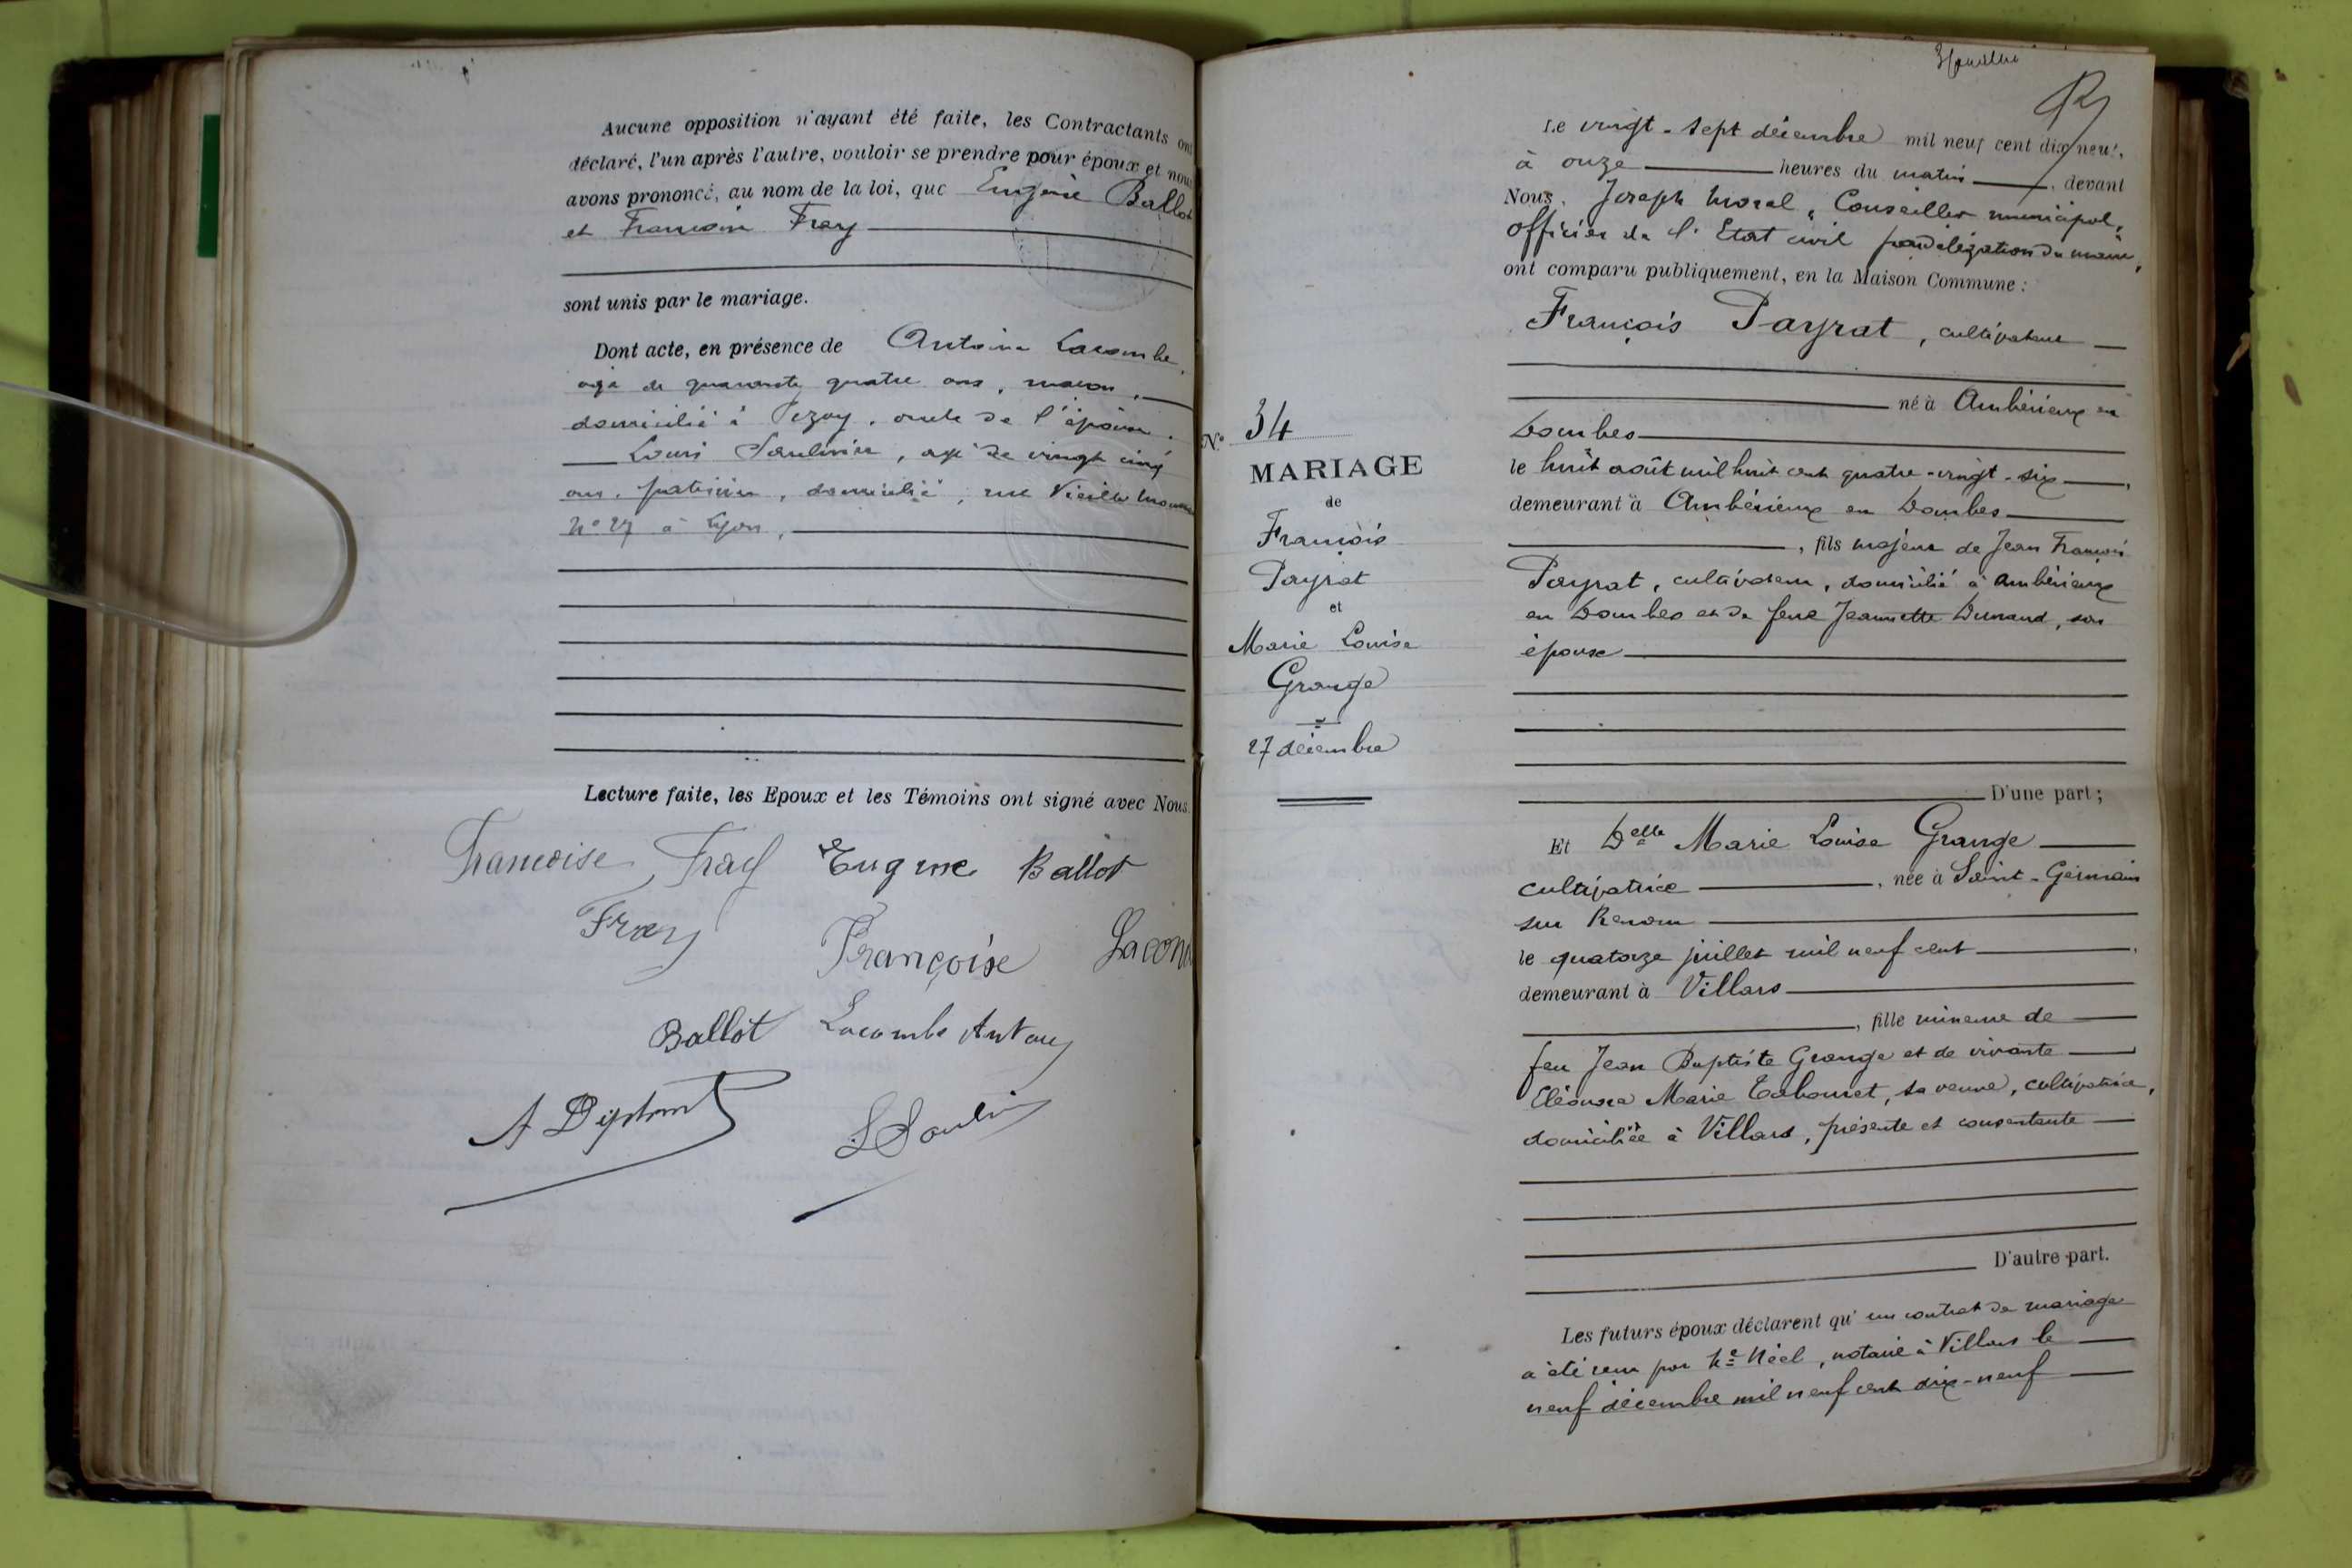 Aucune opposition n'ayant été faite, les Contractants ont
déclaré, l'un après l'autre, vouloir se prendre pour époux et nous
avons prononcé, au nom de la loi, que Eugène Ballot
et Françoise Fray
sont unis par le mariage.
Dont acte, en présence de Antoine Lacombe,
âgé de quarante quatre ans, maçon,
domicilié à Pizay, oncle de l'épouse.
Louis Saulnier, âgé de vingt cinq
ans, patissier, domicilié, rue Vieille Monnaie
N° 27 à Lyon,
Lecture faite, les Epoux et les Témoins ont signé avec Nous.
Francoise Fray Eugène Ballot
Fray Françoise Lacom
Ballot Lacombe Antony
A
N° 34
MARIAGE
de
François
Payrat
et
Marie Louise
Grange
27 décembre
Le vingt-sept décembre mil neuf cent dix neuf,
à onze heures du matin, devant
Nous, Joseph Moral, Conseiller municipal,
officier de l'Etat civil par délégation du maire,
ont comparu publiquement, en la Maison Commune :
François Payrat, cultivateur
né à Ambérieux en
Dombes
le huit août mil huit cent quatre-vingt-six,
demeurant à Ambérieux en Dombes
, fils majeur de Jean François
Payrat, cultivateur, domicilié à Ambérieux
en Dombes et de feue Jeannette Dunand, son
épouse
D'une part ;
Et Delle Marie Louise Grange
cultivatrice, née à Saint-Germain
sur Renom
le quatorze juillet mil neuf cent,
demeurant à Villars
, fille mineure de
feu Jean Baptiste Grange et de vivante
Eléonora Marie Tabouret, sa veuve, cultivatrice,
domiciliée à Villars, présente et consentante
D'autre part.
Les futurs époux déclarent qu'un contrat de mariage
a été reçu par Me Néel, notaire à Villars le
neuf décembre mil neuf cent dix-neuf